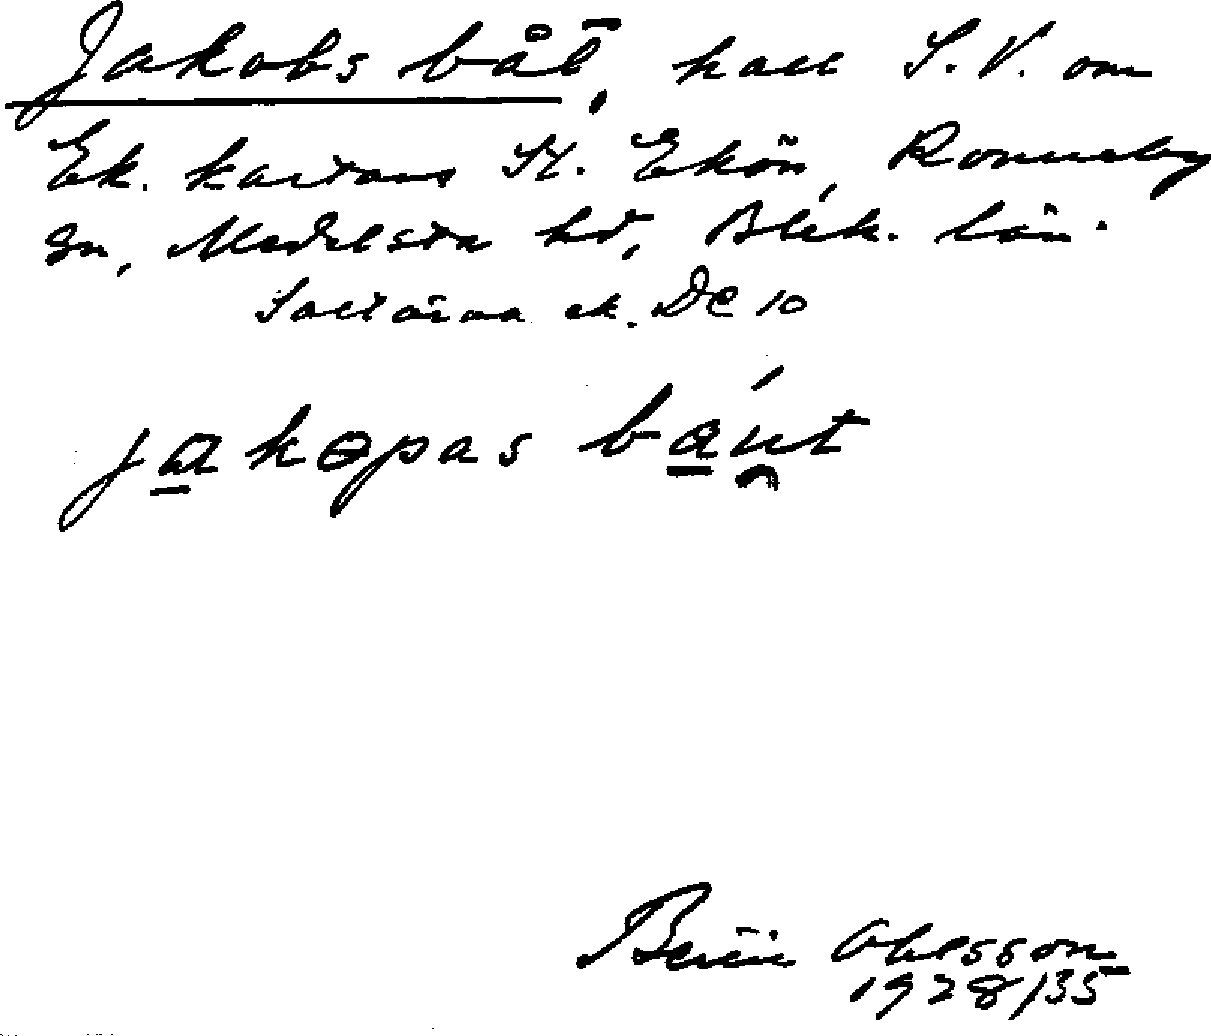 Jakobs båt, hall S.V. om
Ek. kartans St. Ekön, Ronneby
sn, Medelsta hd, Blek. län.
Saltärna ek. DC 10
jakopas baut
Bertil Ohlsson
1928/35